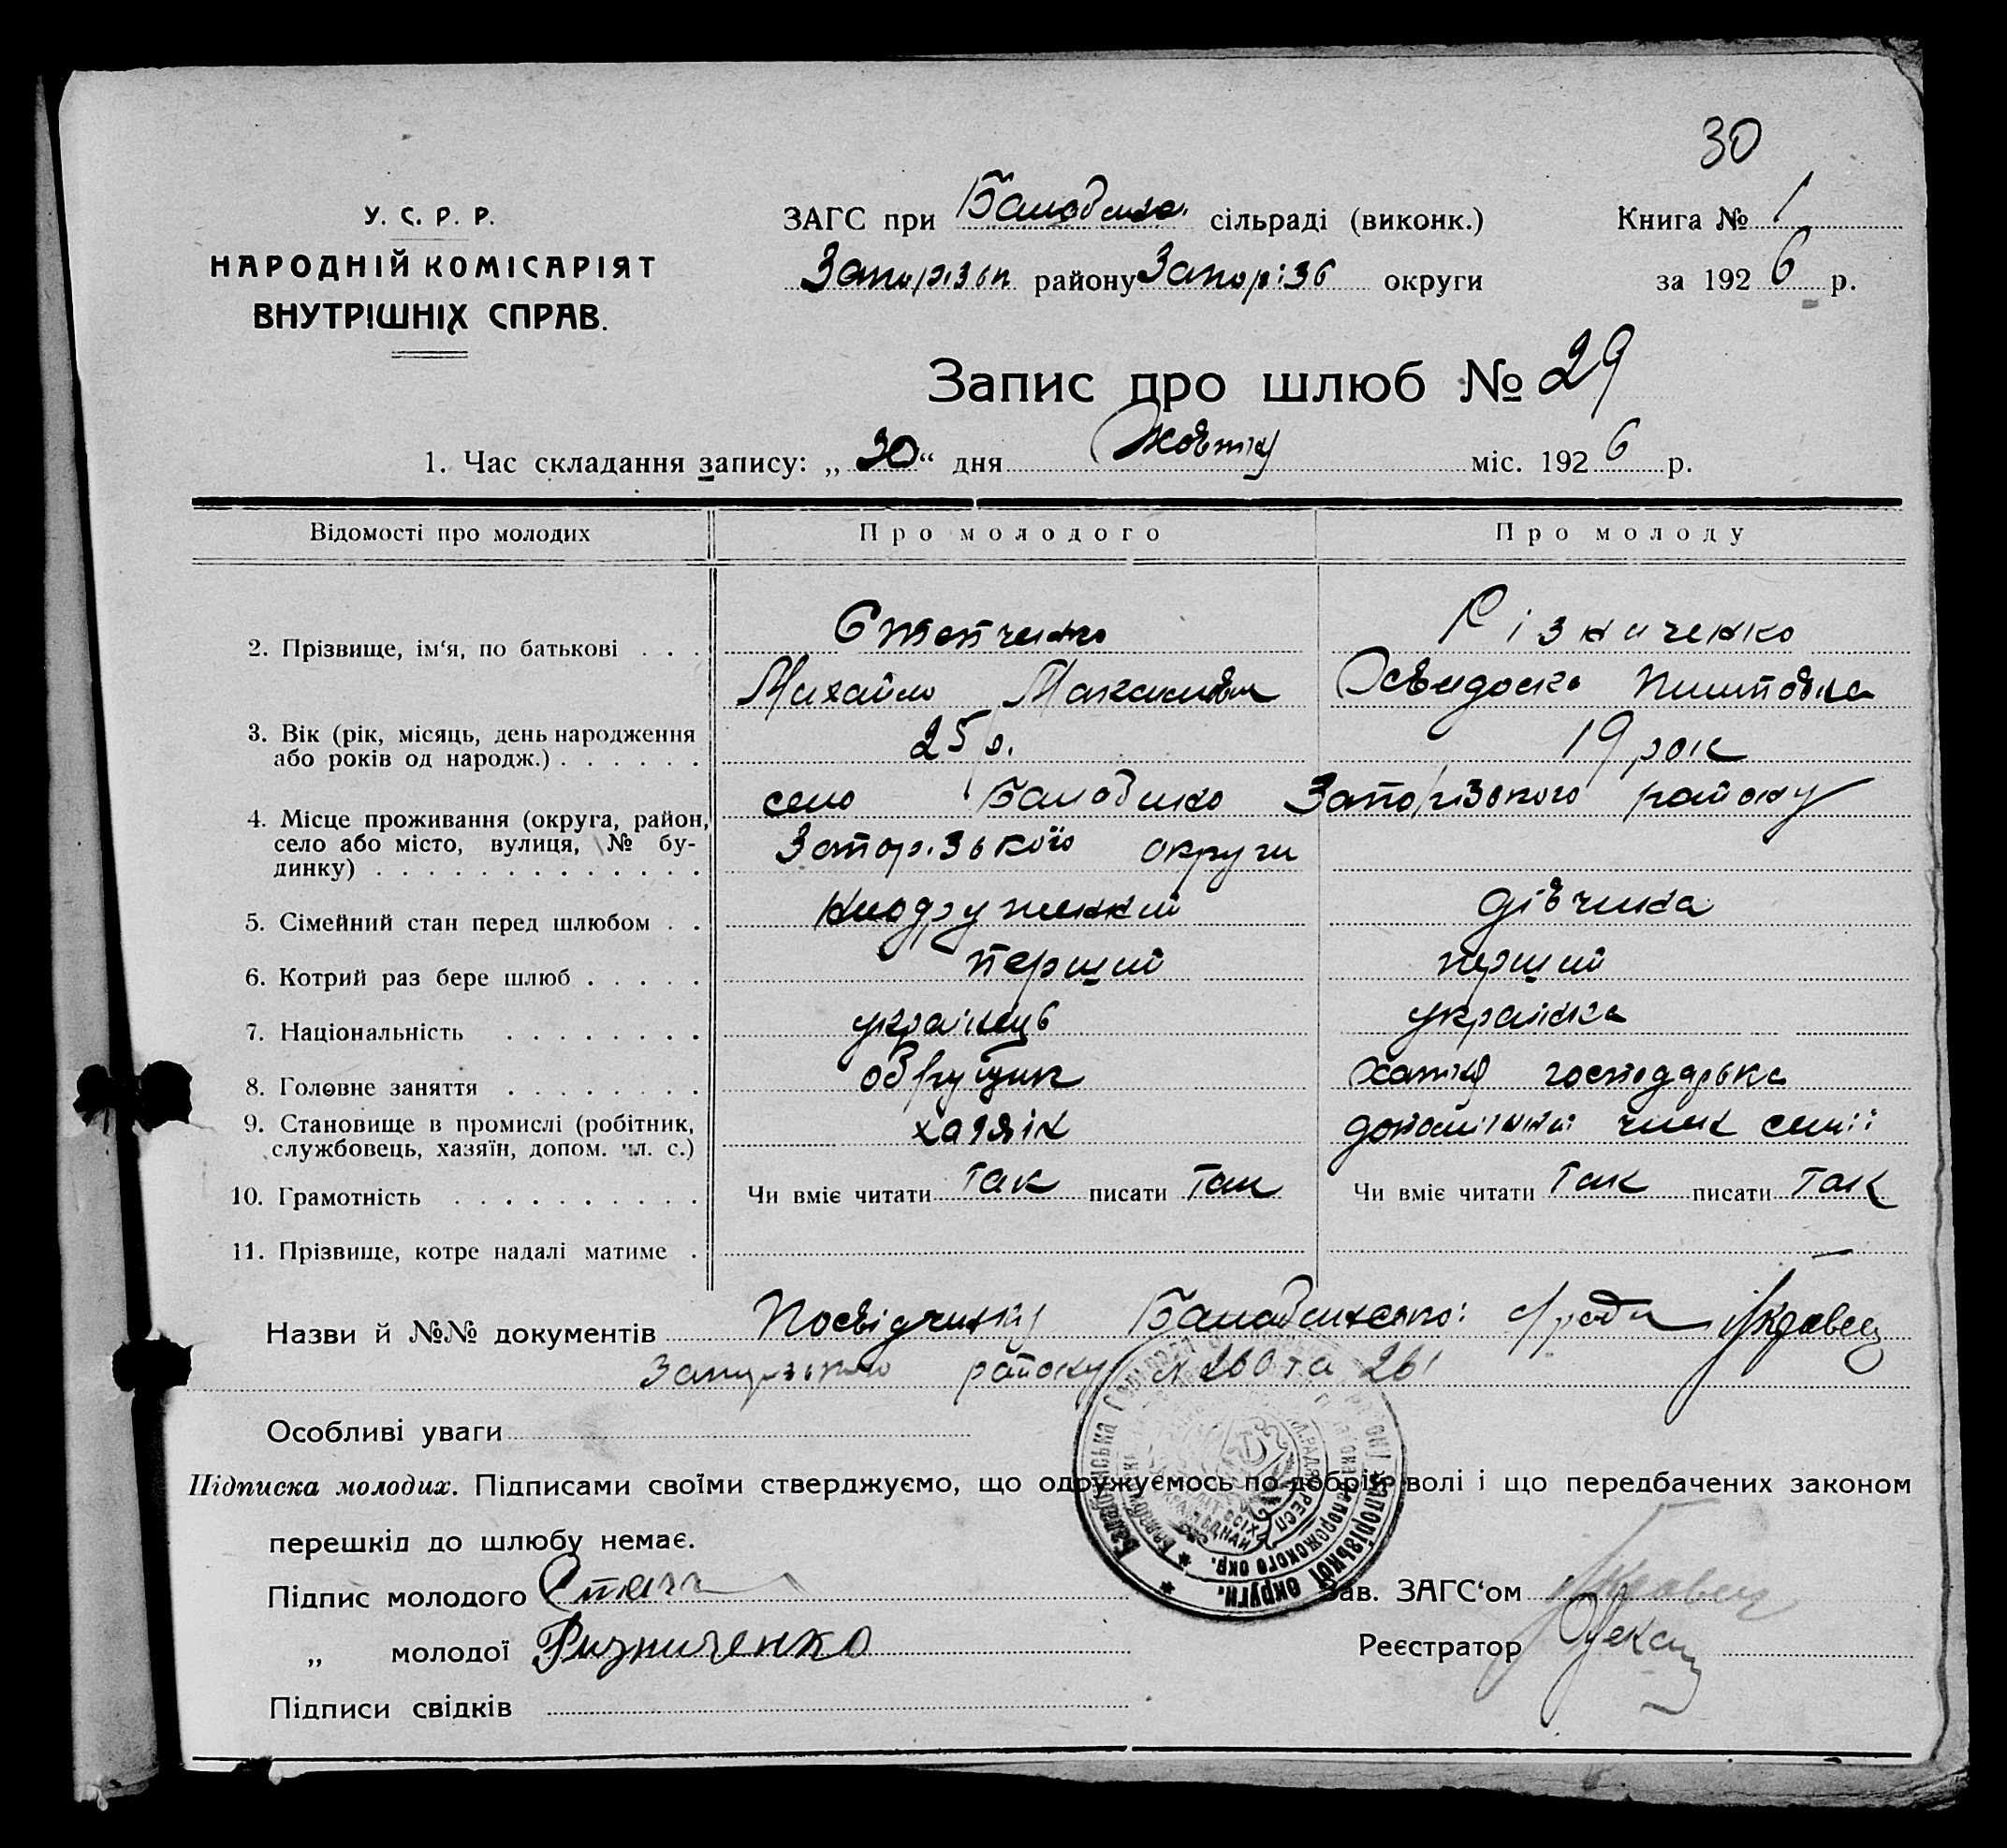 30
У. С. Р. Р.
НАРОДНІЙ КОМІСАРІЯТ
ВНУТРІШНІХ СПРАВ.
ЗАГС при Балабинко. сільраді (виконк.)
Запорізьк району Запоріз6 округи
Книга № 1
за 1926 р.
Запис про шлюб № 29
1. Час складання запису: „30“ дня Жовтня міс. 1926 р.
Відомості про молодих Про молодого Про молоду
2. Прізвище, ім‘я, по батькові . . . Різниченко
Михайло Максимович
3. Вік (рік, місяць, день народження
або років од народж.) . . . . . . 25 р. 19 рок
4. Місце проживання (округа, район,
село або місто, вулиця, № бу-
динку) . . . . . . . . . . . . .
село Балабинко Запорізького району
Запорізької округи
5. Сімейний стан перед шлюбом . . дівчина
6. Котрий раз бере шлюб . . . . . перший перший
7. Національність . . . . . . . . українець українка
8. Головне заняття . . . . . . . . хатня господарька
9. Становище в промислі (робітник,
службовець, хазяїн, допом. чл. с.) хазяїн член семії
10. Грамотність . . . . . . . . . . Чи вміє читати так писати так Чи вміє читати так писати так
11. Прізвище, котре надалі матиме . —
Назви й №№ документів Посвідчинку с/ради Кравець
Запорізького району № 260 та 261
Особливі уваги
Підписка молодих. Підписами своїми стверджуємо, що одружуємось по добрій волі і що передбачених законом
перешкід до шлюбу немає.
Підпис молодого
„ молодої Ризниченко
Підписи свідків
Зав. ЗАГС‘ом Кравець
Реєстратор